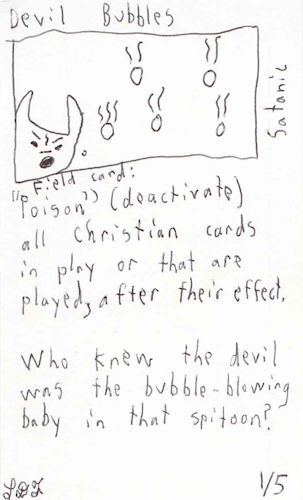 Devil Bubbles
Satanic
Field card:
"Poison" (deactivate)
all Christian cards
in play or that are
played, after their effect.
Who knew the devil
was the bubble-blowing
baby in that spitoon?
1/5